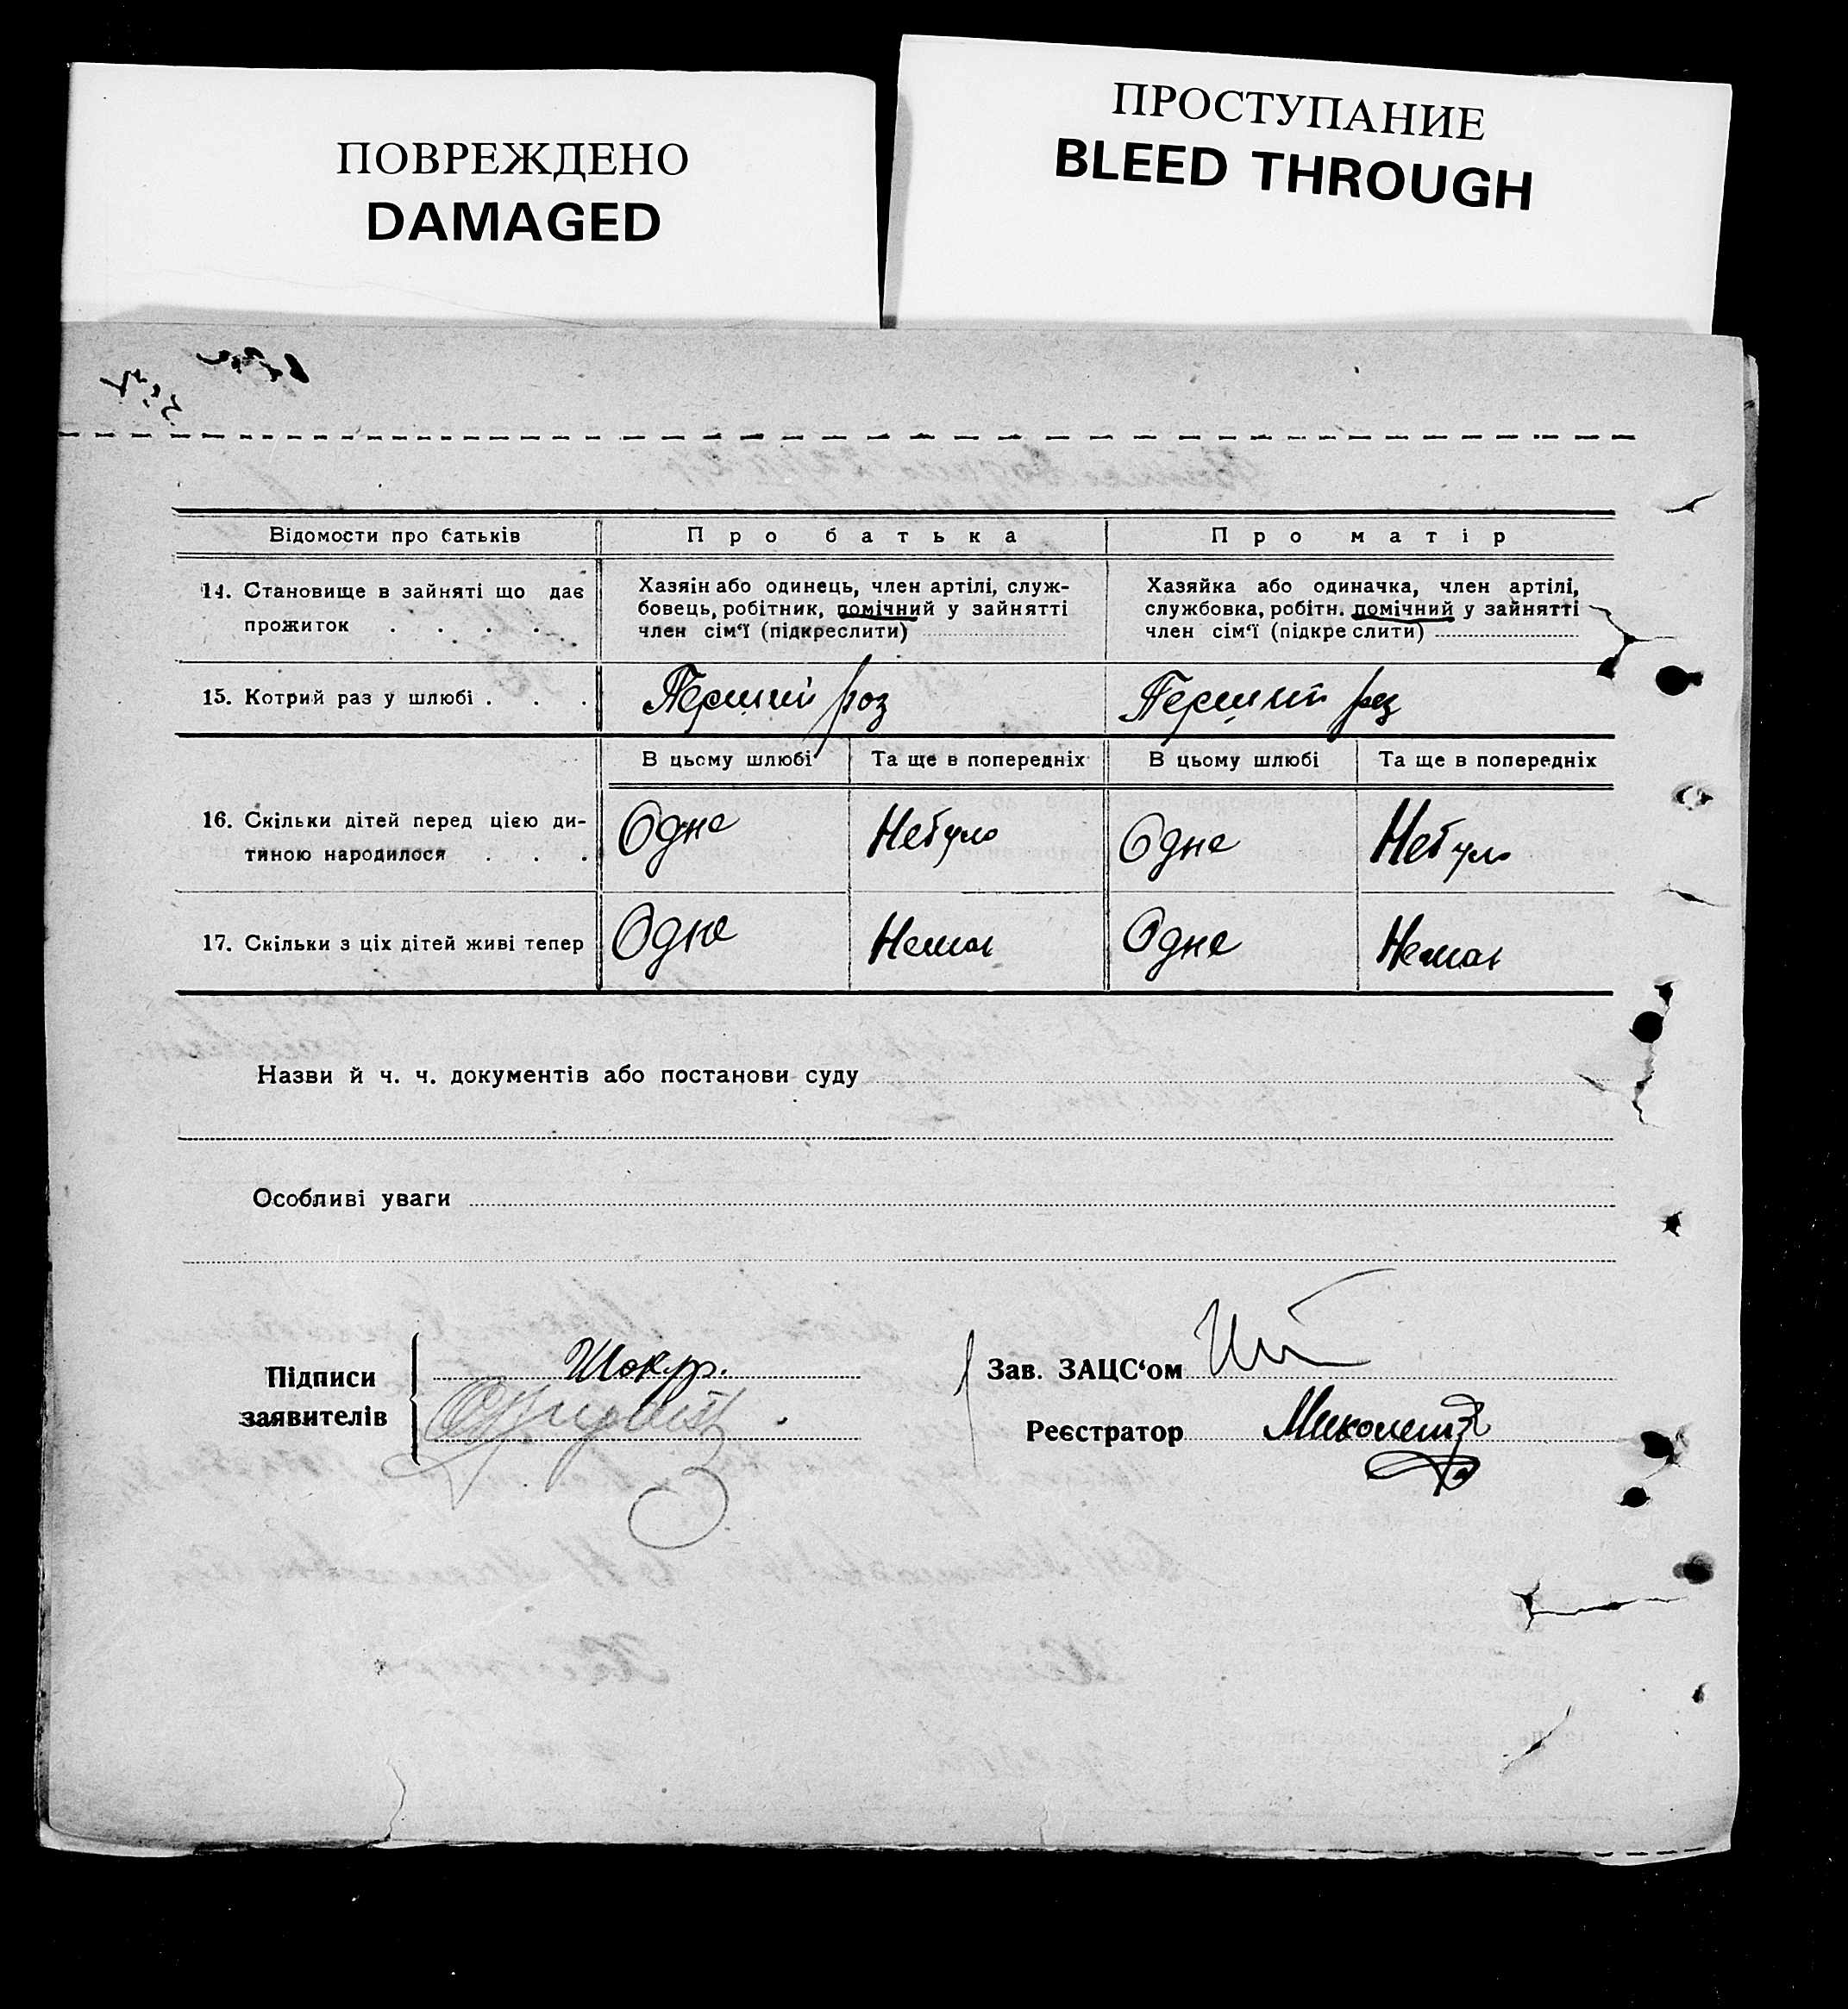 ПОВРЕЖДЕНО
DAMAGED
ПРОСТУПАНИЕ
BLEED THROUGH
Відомости про батьків
Про батька
Про матір
14. Становище в зайняті що дає
прожиток . . . .
Хазяін або одинець, член артілі, служ-
бовець, робітник, помічний у зайнятті
член сім‘ї (підкреслити)
Хазяйка або одиначка, член артілі,
службовка, робітн. помічний у зайнятті
член сім‘ї (підкре слити)
15. Котрий раз у шлюбі . . .
Перший роз
Перший рез
В цьому шлюбі
Та ще в попередніх
В цьому шлюбі
Та ще в попередніх
16. Скільки дітей перед цією ди-
тиною народилося . . .
Одне
Небуло
Одне
Небуло
17. Скільки з ціх дітей живі тепер
Одне
Немає
Одне
Немає
Назви й ч. ч. документів або постанови суду
Особливі уваги
Підписи
заявителів
Зав. ЗАЦС‘ом
Реєстратор